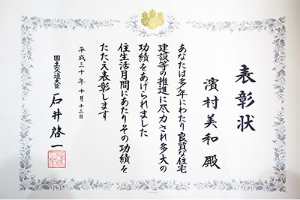 表彰状
濱村美和 殿
あなたは多年にわたり良質な住宅
建設等の推進に尽力され多大の
功績をあげられました
住生活月間にあたりその功績を
たたえ表彰します
平成三十年十月十三日
国土交通大臣 石井啓一